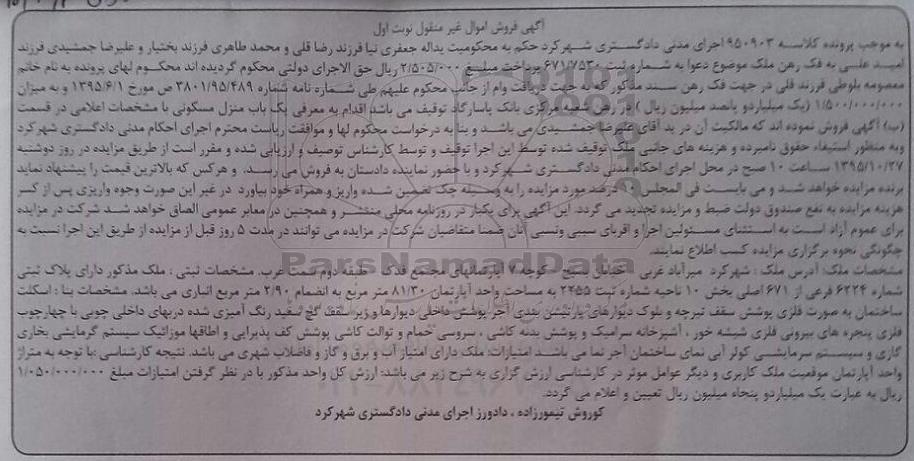 آگهی فروش اموال غیر منقول نوبت اول
به موجب پرونده کلاسه ۹۵۰۹۰۳ اجرای مدنی دادگستری شهرکرد حکم به محکومیت یداله جعفری نیا فرزند رضا قلی و محمد طاهری فرزند بختیار و علیرضا جمشیدی فرزند
امید علی به فک رهن ملک موضوع دعوا به شماره ثبت ۶۷۱/۷۵۳۰ پرداخت مبلغ ۲/۵۰۵/۰۰۰ ریال حق الاجرای دولتی محکوم گردیده اند محکوم لهای پرونده به نام خانم
معصومه بلوطی فرزند قلی در جهت فک رهن سند مذکور که به جهت دریافت وام از جانب محکوم علیهم طی شماره نامه شماره ۳۸۰۱/۹۵/۴۸۹ ص مورخ ۱۳۹۵/۶/۱ و به میزان
۱/۵۰۰/۰۰۰/۰۰۰ (یک میلیاردو پانصد میلیون ریال) در رهن شعبه مرکزی بانک پاسارگاد توقیف می باشد اقدام به معرفی یک باب منزل مسکونی با مشخصات اعلامی در قسمت
(ب) آگهی فروش نموده اند که مالکیت آن در ید آقای علیرضا جمشیدی می باشد و بنا به درخواست محکوم لها و موافقت ریاست محترم اجرای احکام مدنی دادگستری شهرکرد
وبه منظور استیفاء حقوق نامبرده و هزینه های جانبی ملک توقیف شده توسط این اجرا توقیف و توسط کارشناس توصیف و ارزیابی شده و مقرر است از طریق مزایده در روز دوشنبه
۱۳۹۵/۱۰/۲۷ ساعت ۱۰ صبح در محل اجرای احکام مدنی دادگستری شهرکرد و با حضور نماینده دادستان به فروش می رسد، و هرکس که بالاترین قیمت را پیشنهاد نماید
برنده مزایده خواهد شد و می بایست فی المجلس درصد مورد مزایده را به وسیله چک تضمین شده واریز و همراه خود بیاورد در غیر این صورت وجوه واریزی پس از کسر
هزینه مزایده به نفع صندوق دولت ضبط و مزایده تجدید می گردد. این آگهی برای یکبار در روزنامه محلی منتشر و همچنین در معابر عمومی الصاق خواهد شد شرکت در مزایده
برای عموم آزاد است به استثنای مسئولین اجرا و اقربای سببی ونسبی آنان ضمنا متقاضیان شرکت در مزایده می توانند در مدت ۵ روز قبل از مزایده از طریق این اجرا نسبت به
چگونگی نحوه برگزاری مزایده کسب اطلاع نمایند.
مشخصات ملک: آدرس ملک: شهرکرد میرآباد غربی خیابان بسیج کوچه ۷ آپارتمانهای مجتمع فدک طبقه دوم سمت غرب. مشخصات ثبتی: ملک مذکور دارای پلاک ثبتی
شماره ۶۲۲۴ فرعی از ۶۷۱ اصلی بخش ۱۰ ناحیه شماره ثبت ۲۴۵۵ به مساحت واحد آپارتمان ۸۱/۳۰ متر مربع به انضمام ۲/۹۰ متر مربع انباری می باشد. مشخصات بنا: اسکلت
ساختمان به صورت فلزی پوشش سقف تیرچه و بلوک دیوارهای پارتیشن بندی آجر پوشش داخلی دیوارها و زیر سقف گچ سفید رنگ آمیزی شده دربهای داخلی چوبی با چهارچوب
فلزی پنجره های بیرونی فلزی شیشه خور، آشپزخانه سرامیک و پوشش بدنه کاشی، سرویس حمام و توالت کاشی پوشش کف پذیرایی و اطاقها موزائیک سیستم گرمایشی بخاری
گازی و سیستم سرمایشی کولر آبی نمای ساختمان آجر نما می باشد امتیازات: ملک دارای امتیاز آب و برق و گاز و فاضلاب شهری می باشد. نتیجه کارشناسی: با توجه به متراژ
واحد آپارتمان موقعیت ملک کاربری و دیگر عوامل موثر در کارشناسی ارزش گزاری به شرح زیر می باشد: ارزش کل واحد مذکور با در نظر گرفتن امتیازات مبلغ ۱/۰۵۰/۰۰۰/۰۰۰
ریال به عبارت یک میلیاردو پنجاه میلیون ریال تعیین و اعلام می گردد.
کوروش تیمورزاده، دادورز اجرای مدنی دادگستری شهرکرد
ParsNamadData